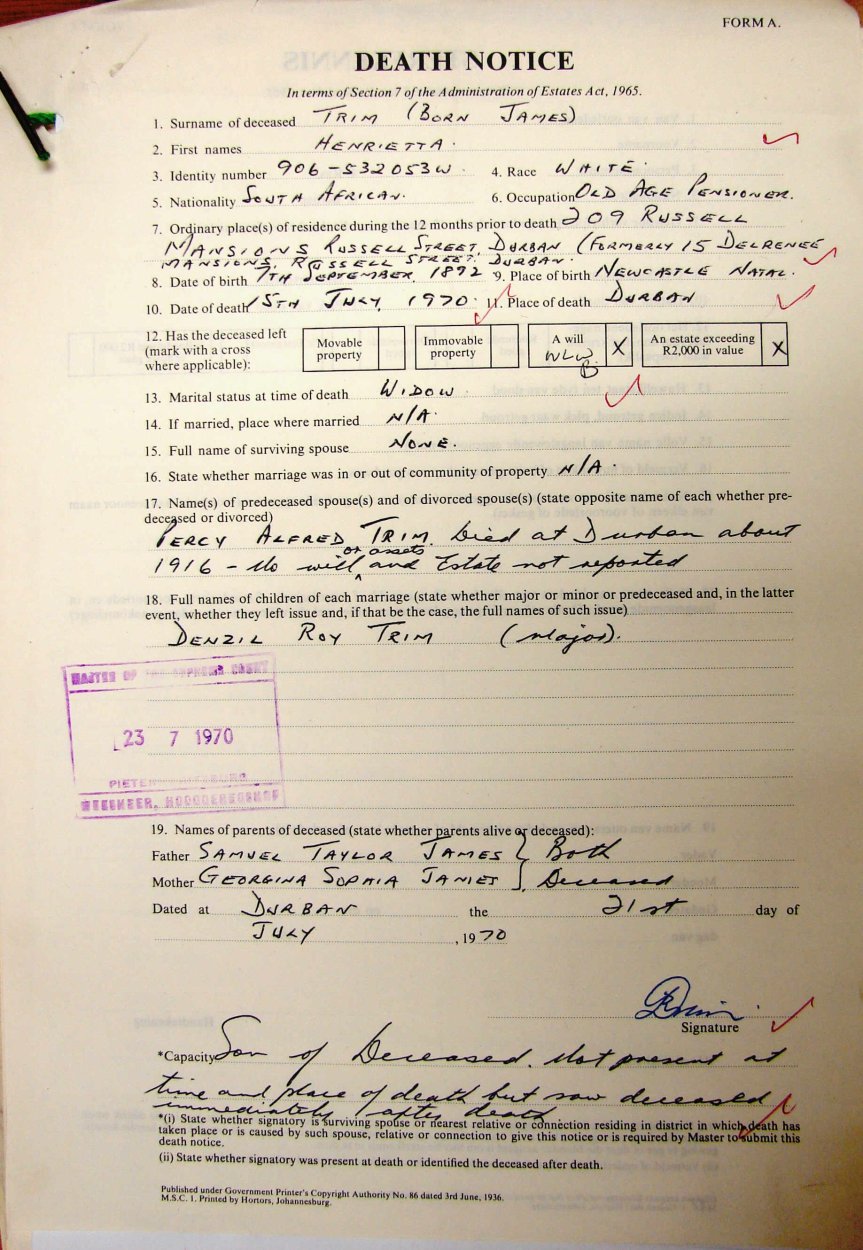 FORM A.
DEATH NOTICE
In terms of Section 7 of the Administration of Estates Act, 1965.
1. Surname of deceased TRIM (BORN JAMES)
2. First names HENRIETTA.
3. Identity number 906-532053W. 4. Race WHITE.
5. Nationality SOUTH AFRICAN. 6. Occupation OLD AGE PENSIONER.
7. Ordinary place(s) of residence during the 12 months prior to death 209 RUSSELL
MANSIONS RUSSELL STREET, DURBAN (FORMERLY 15 DELRENEE
MANSIONS, RUSSELL STREET. DURBAN.
8. Date of birth 7TH SEPTEMBER, 1892 9. Place of birth NEWCASTLE NATAL.
10. Date of death 15TH JULY, 1970. 11. Place of death DURBAN
12. Has the deceased left (mark with a cross where applicable): Movable property Immovable property A will X An estate exceeding R2,000 in value X
13. Marital status at time of death WIDOW.
14. If married, place where married N/A.
15. Full name of surviving spouse NONE.
16. State whether marriage was in or out of community of property N/A.
17. Name(s) of predeceased spouse(s) and of divorced spouse(s) (state opposite name of each whether pre-
deceased or divorced)
PERCY ALFRED TRIM. Died at Durban about
or assets
1916 - No will and Estate not reported
18. Full names of children of each marriage (state whether major or minor or predeceased and, in the latter
event, whether they left issue and, if that be the case, the full names of such issue)
DENZIL ROY TRIM (Major).
MASTER OF THE SUPREME COURT
23 7 1970
19. Names of parents of deceased (state whether parents alive or deceased):
Father SAMUEL TAYLOR JAMES } Both
Mother GEORGINA SOPHIA JAMES } Deceased
Dated at DURBAN the 21st day of
JULY , 1970
Signature
*Capacity Son of Deceased. Not present at
time and place of death but saw deceased
immediately after death
*(i) State whether signatory is surviving spouse or nearest relative or connection residing in district in which death has
taken place or is caused by such spouse, relative or connection to give this notice or is required by Master to submit this
death notice.
(ii) State whether signatory was present at death or identified the deceased after death.
Published under Government Printer's Copyright Authority No. 86 dated 3rd June, 1936.
M.S.C. 1. Printed by Hortors, Johannesburg.